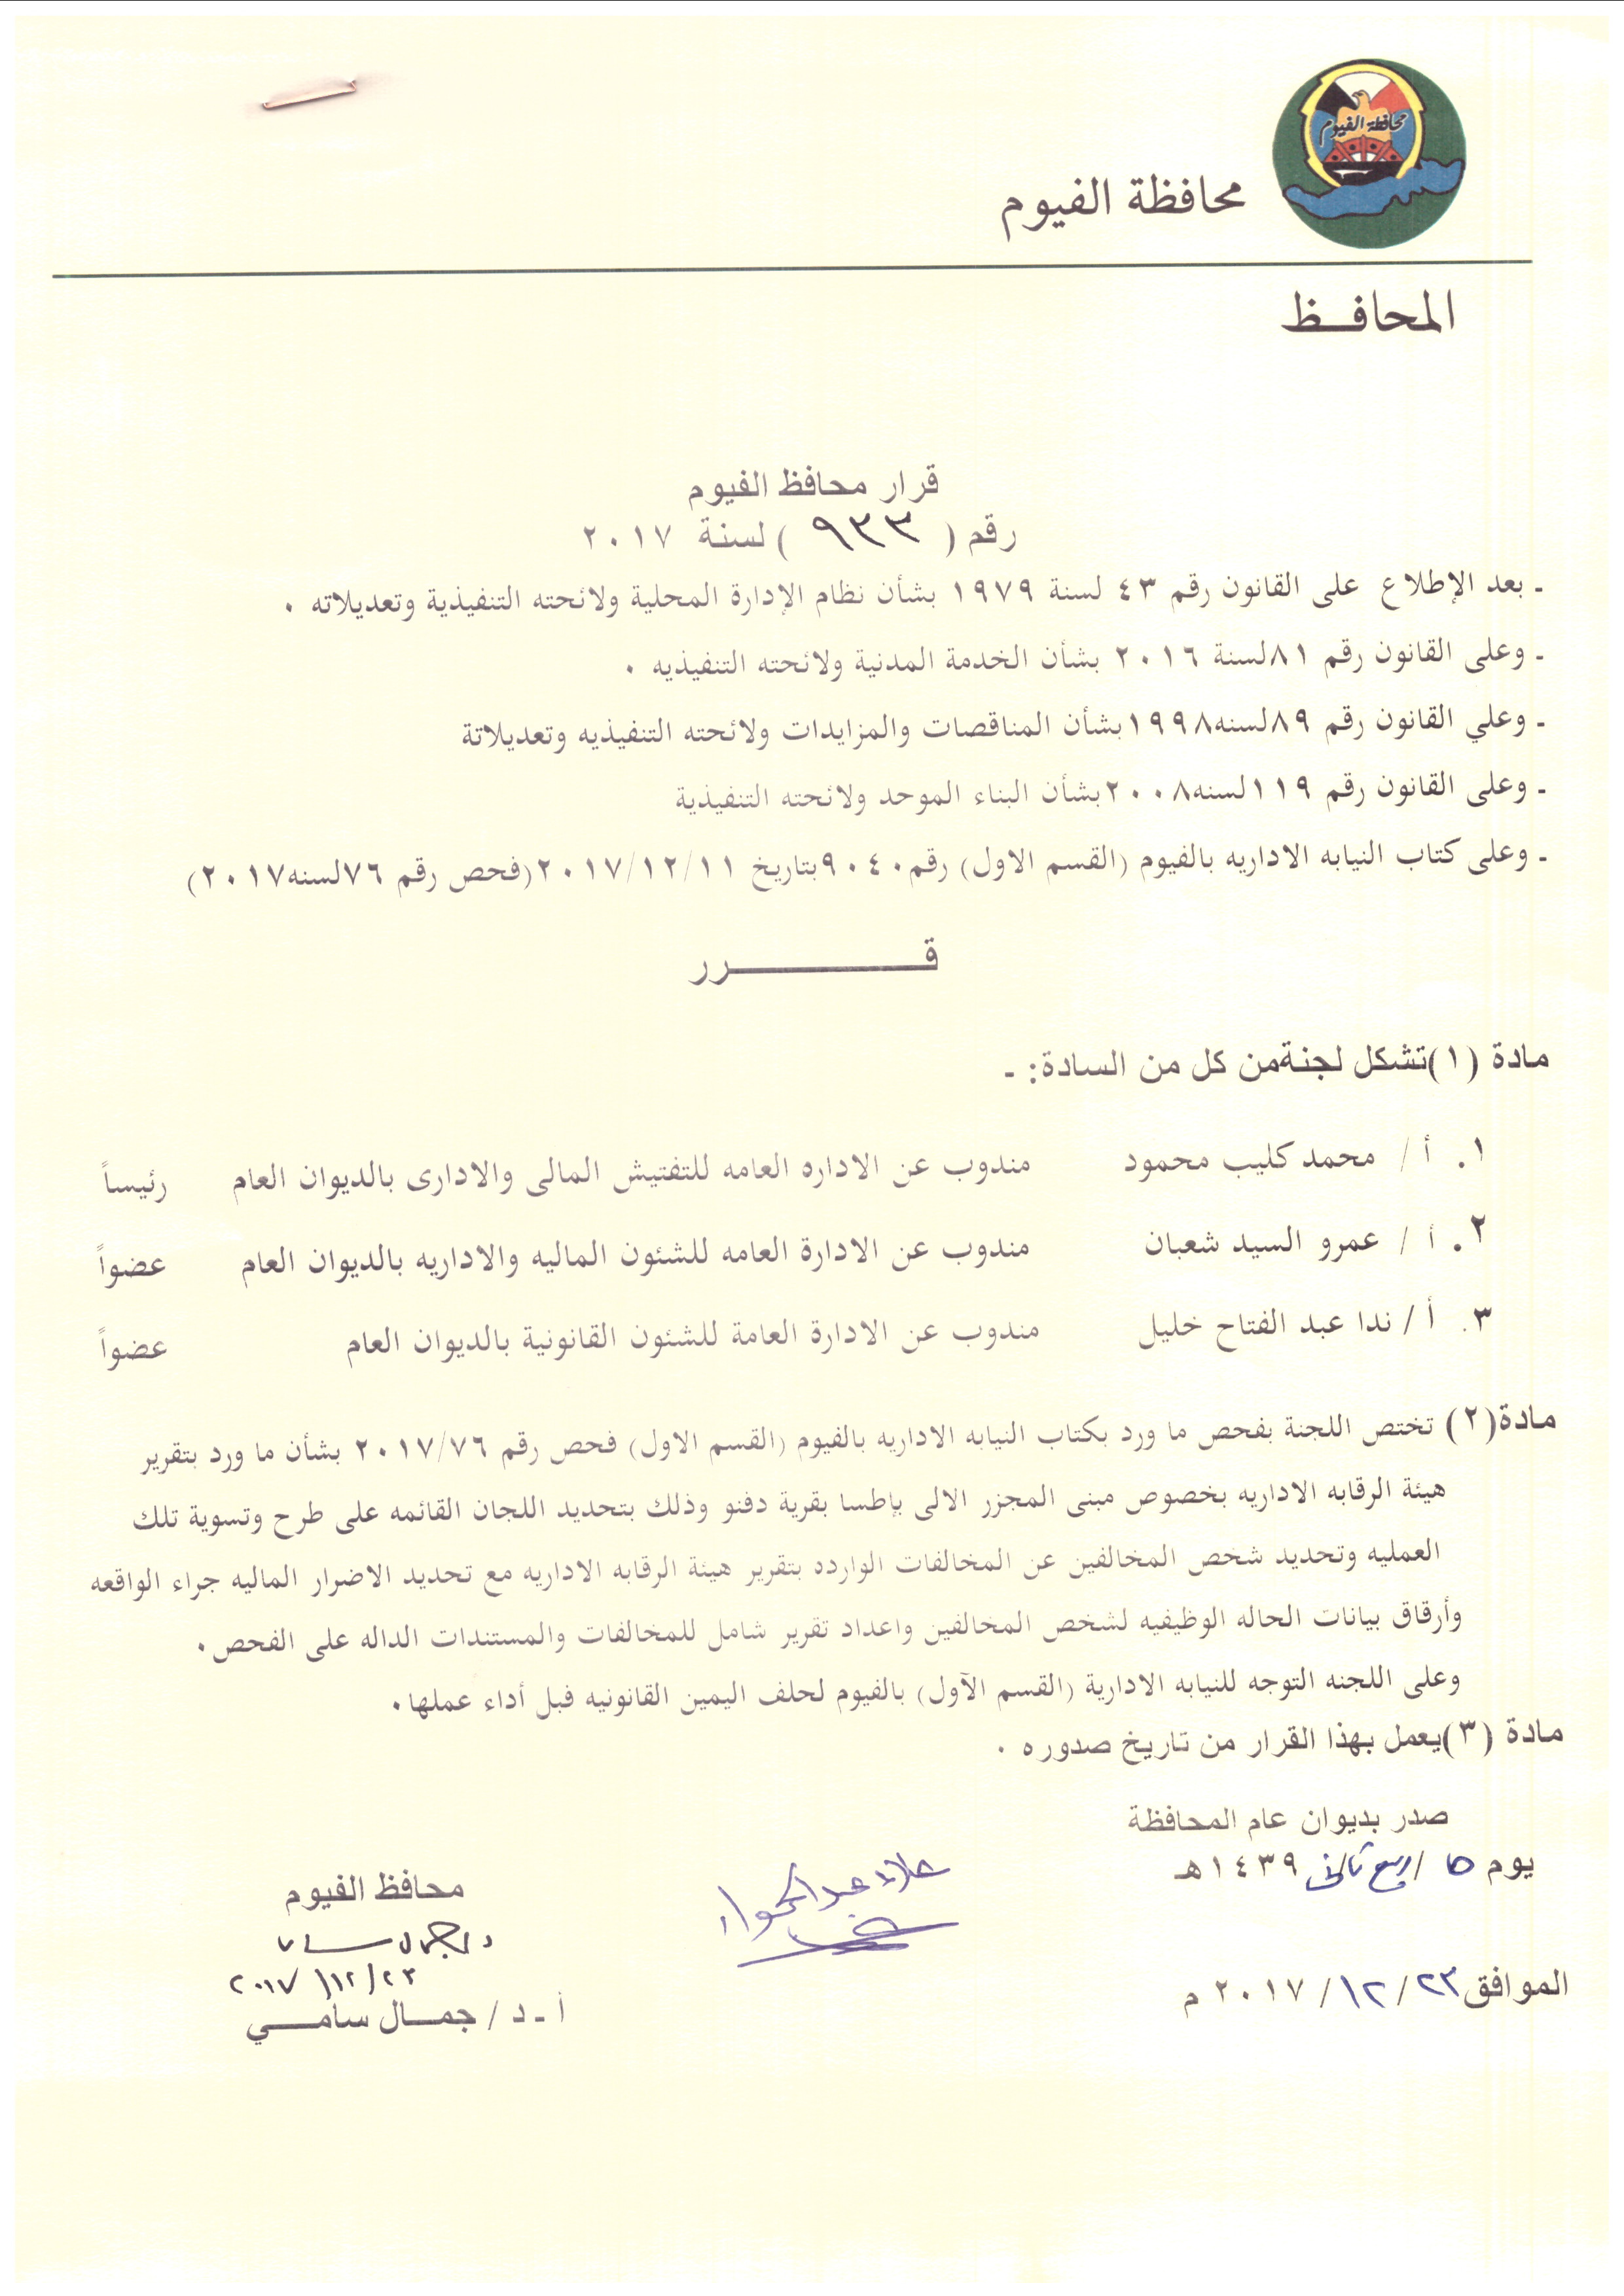 محافظة الفيوم
محافظة الفيوم
المحافـــظ
قرار محافظ الفيوم
رقم ( ٩٣٣ ) لسنة ٢٠١٧
ـ بعد الإطلاع على القانون رقم ٤٣ لسنة ١٩٧٩ بشأن نظام الإدارة المحلية ولائحته التنفيذية وتعديلاته ٠
ـ وعلى القانون رقم ٨١لسنة ٢٠١٦ بشأن الخدمة المدنية ولائحته التنفيذيه ٠
ـ وعلي القانون رقم ٨٩لسنه١٩٩٨بشأن المناقصات والمزايدات ولائحته التنفيذيه وتعديلاتة
ـ وعلى القانون رقم ١١٩لسنه٢٠٠٨بشأن البناء الموحد ولائحته التنفيذية
ـ وعلى كتاب النيابه الاداريه بالفيوم (القسم الاول) رقم٩٠٤٠بتاريخ ٢٠١٧/١٢/١١(فحص رقم ٧٦لسنه٢٠١٧)
قــــــــــــرر
مادة (١)تشكل لجنةمن كل من السادة: ـ
١. أ / محمد كليب محمود مندوب عن الاداره العامه للتفتيش المالى والادارى بالديوان العام رئيساً
٢. أ / عمرو السيد شعبان مندوب عن الادارة العامه للشئون الماليه والاداريه بالديوان العام عضواً
٣. أ / ندا عبد الفتاح خليل مندوب عن الادارة العامة للشئون القانونية بالديوان العام عضواً
مادة(٢) تختص اللجنة بفحص ما ورد بكتاب النيابه الاداريه بالفيوم (القسم الاول) فحص رقم ٢٠١٧/٧٦ بشأن ما ورد بتقرير
هيئة الرقابه الاداريه بخصوص مبنى المجزر الالى بإطسا بقرية دفنو وذلك بتحديد اللجان القائمه على طرح وتسوية تلك
العمليه وتحديد شخص المخالفين عن المخالفات الوارده بتقرير هيئة الرقابه الاداريه مع تحديد الاضرار الماليه جراء الواقعه
وأرقاق بيانات الحاله الوظيفيه لشخص المخالفين واعداد تقرير شامل للمخالفات والمستندات الداله على الفحص٠
وعلى اللجنه التوجه للنيابه الادارية (القسم الآول) بالفيوم لحلف اليمين القانونيه قبل أداء عملها٠
مادة (٣)يعمل بهذا القرار من تاريخ صدوره ٠
صدر بديوان عام المحافظة
يوم ٥ / ربيع ثانى ١٤٣٩هـ
الموافق٢٣ / ١٢ / ٢٠١٧ م
علاء عبد الجواد
محافظ الفيوم
٢٠١٧/١٢/٢٣
أ ـ د / جمـــال سامـــي